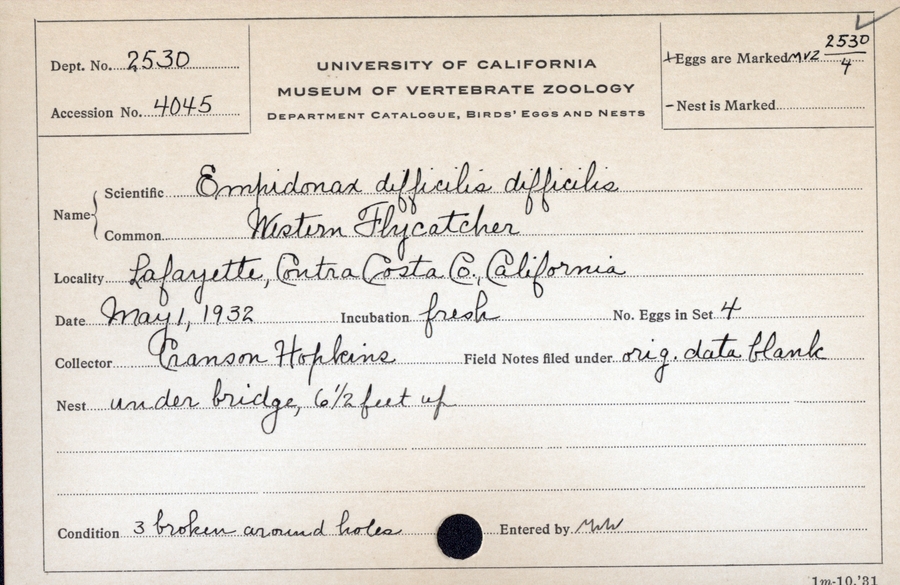 Dept. No. 2530
Accession No. 4045
UNIVERSITY OF CALIFORNIA
MUSEUM OF VERTEBRATE ZOOLOGY
DEPARTMENT CATALOGUE, BIRDS' EGGS AND NESTS
+Eggs are Marked MVZ 2530/4
-Nest is Marked
Name
Scientific Empidonax difficilis difficilis
Common Western Flycatcher
Locality Lafayette, Contra Costa Co., California
Date May 1, 1932 Incubation fresh No. Eggs in Set 4
Collector Cranson Hopkins Field Notes filed under orig. data blank
Nest under bridge, 6 1/2 feet up
Condition 3 broken around holes Entered by
1m-10,'31